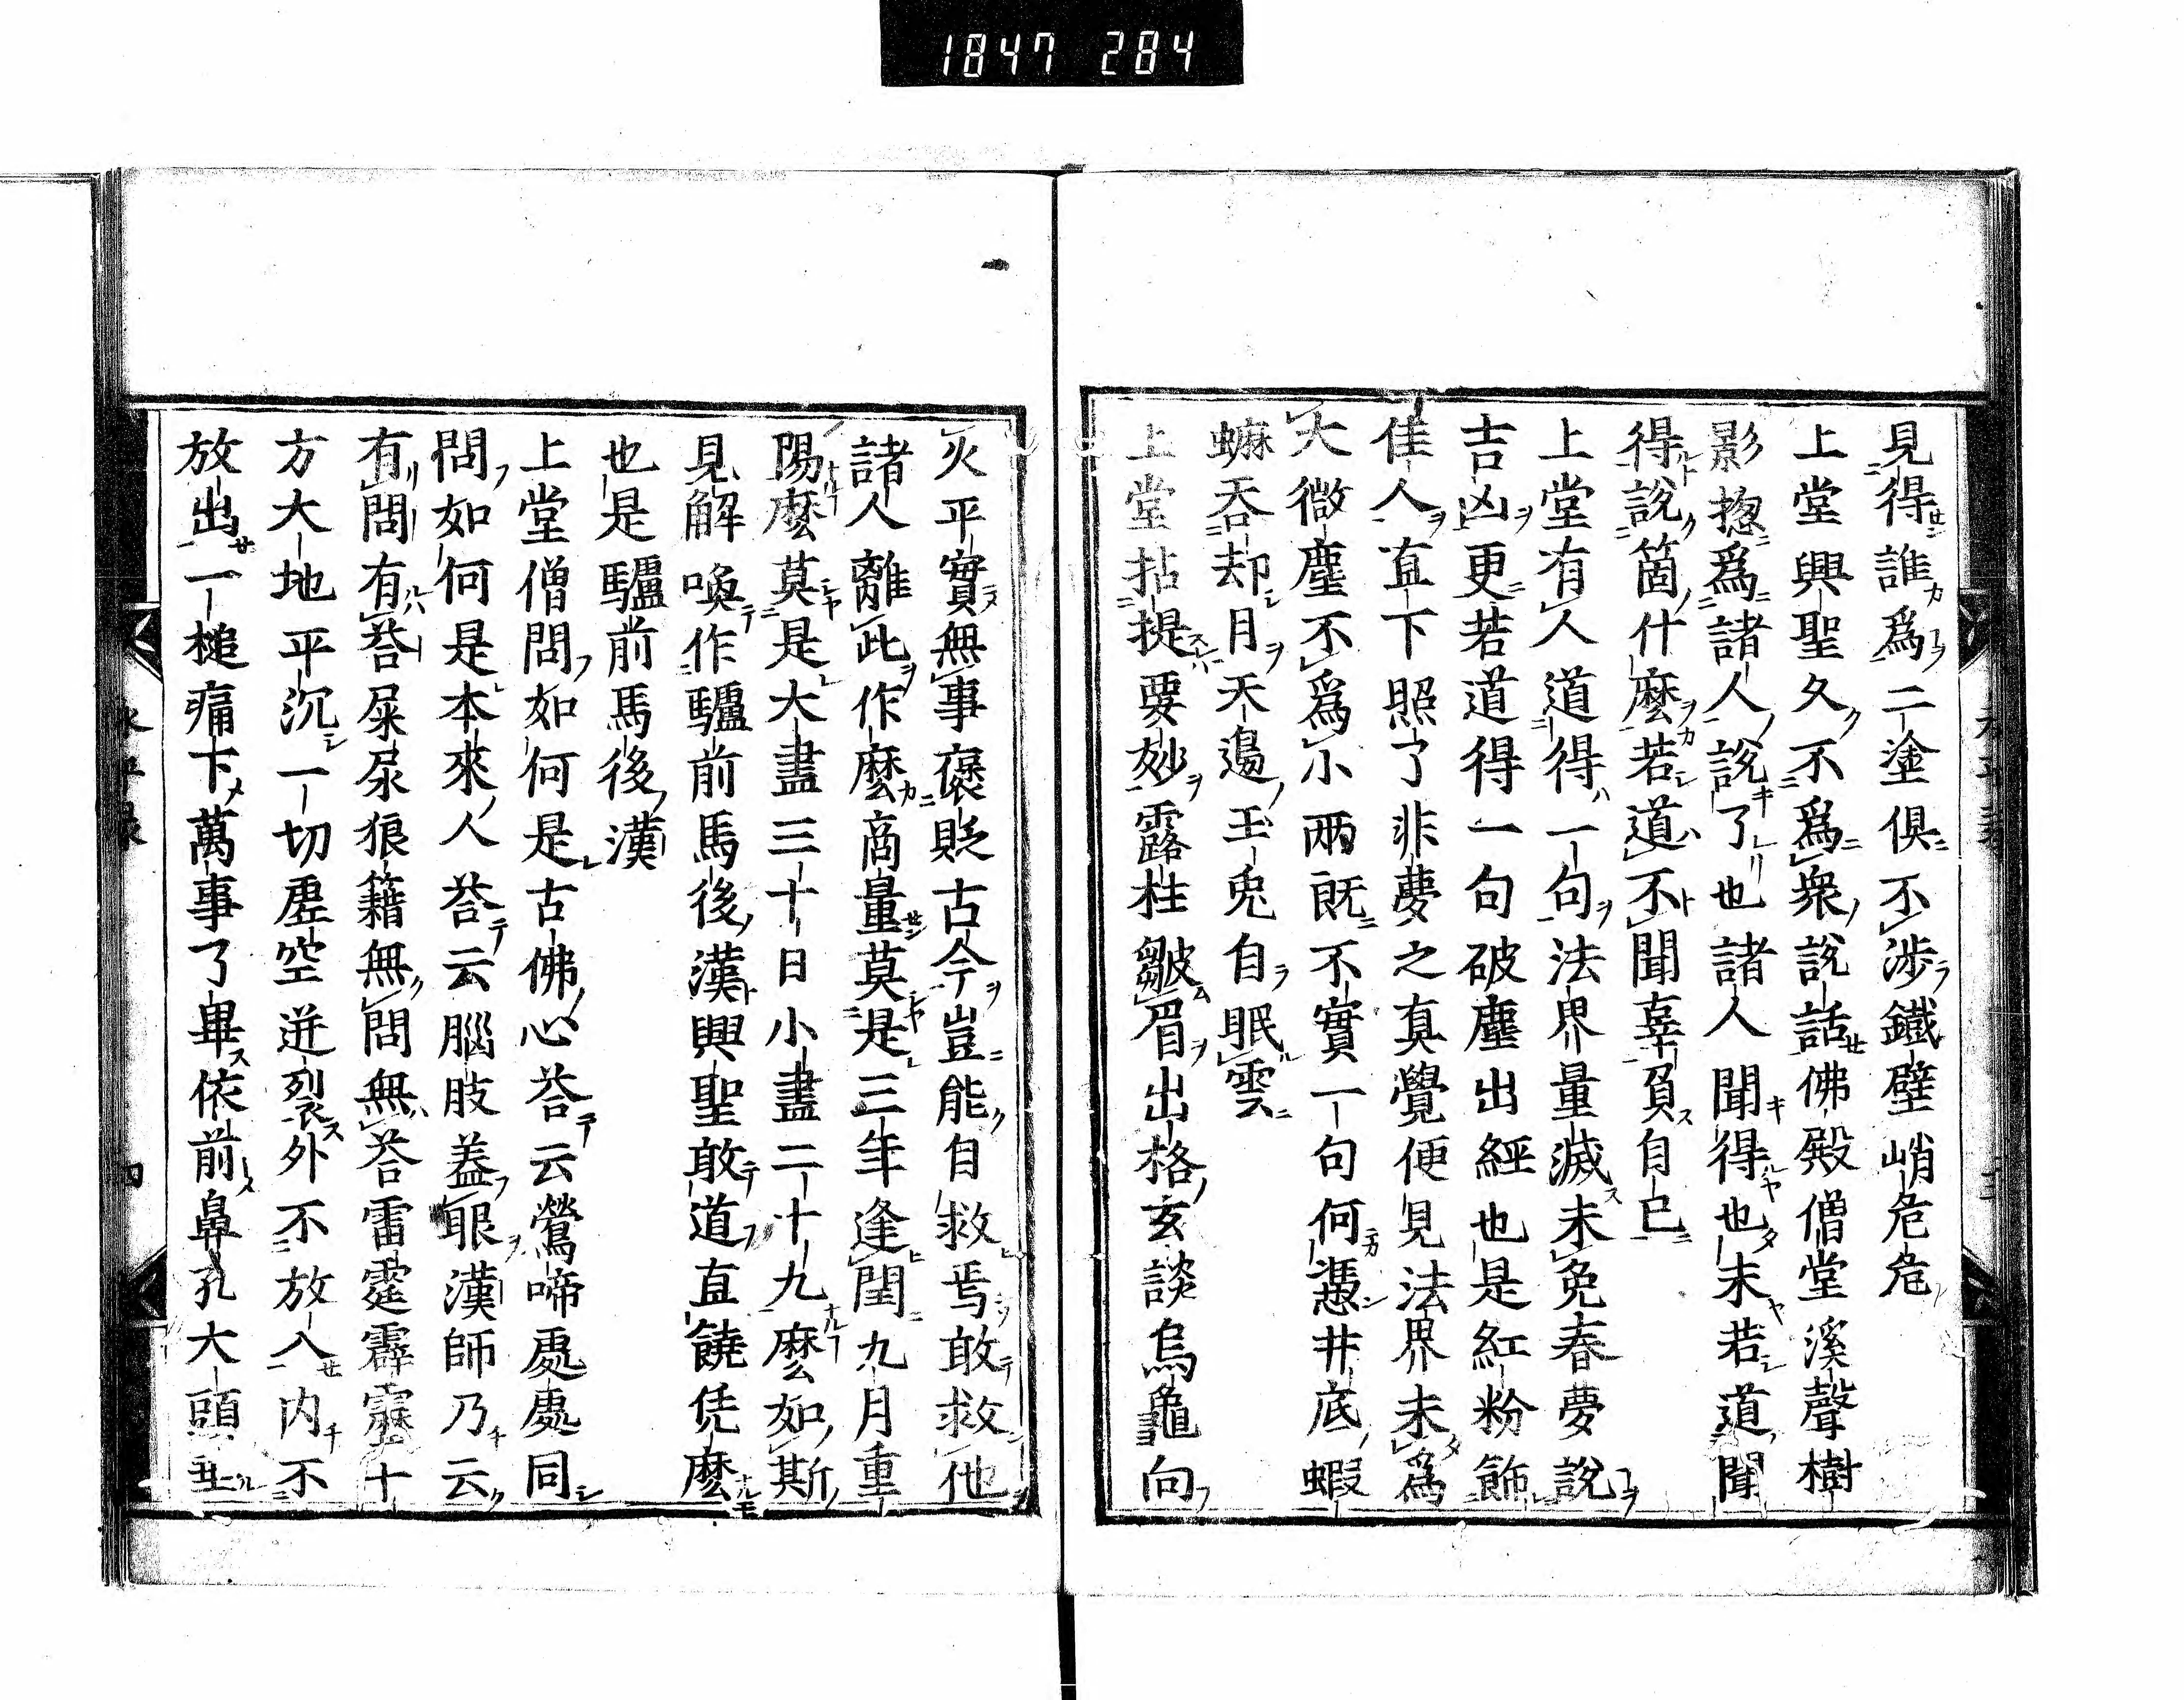 1847 284
見得誰爲二塗俱不渉鐵壁峭危危
上堂興聖久不爲衆說話佛殿僧堂溪聲樹
影揔爲諸人說了也諸人聞得也未若道聞
得說箇什麽若道不聞辜負自已
上堂有人道得一句法界量滅未免春夢說
吉凶更若道得一句破塵出經也是紅粉飾
佳人直下照了非夢之真覺便見法界未爲
大微塵不爲小兩既不實一句何憑井底蝦
蟆吞却月天邊玉兎自眠雲
上堂拈提要妙露柱皺眉出格玄談烏龜向
火平實無事襃貶古今豈能自救焉敢救他
諸人離此作麽商量莫是三年逢閏九月重
陽麽莫是大盡三十日小盡二十九麽如斯
見解喚作驢前馬後漢興聖敢道直饒恁麽
也是驢前馬後漢
上堂僧問如何是古佛心荅云鶯啼處處同
問如何是本來人荅云腦肢蓋眼漢師乃云
有問有荅屎尿狼籍無問無荅雷霆霹靂十
方大地平沉一切虛空迸裂外不放入内不
放出一槌痛下萬事了畢依前鼻孔大頭垂
永平録
四